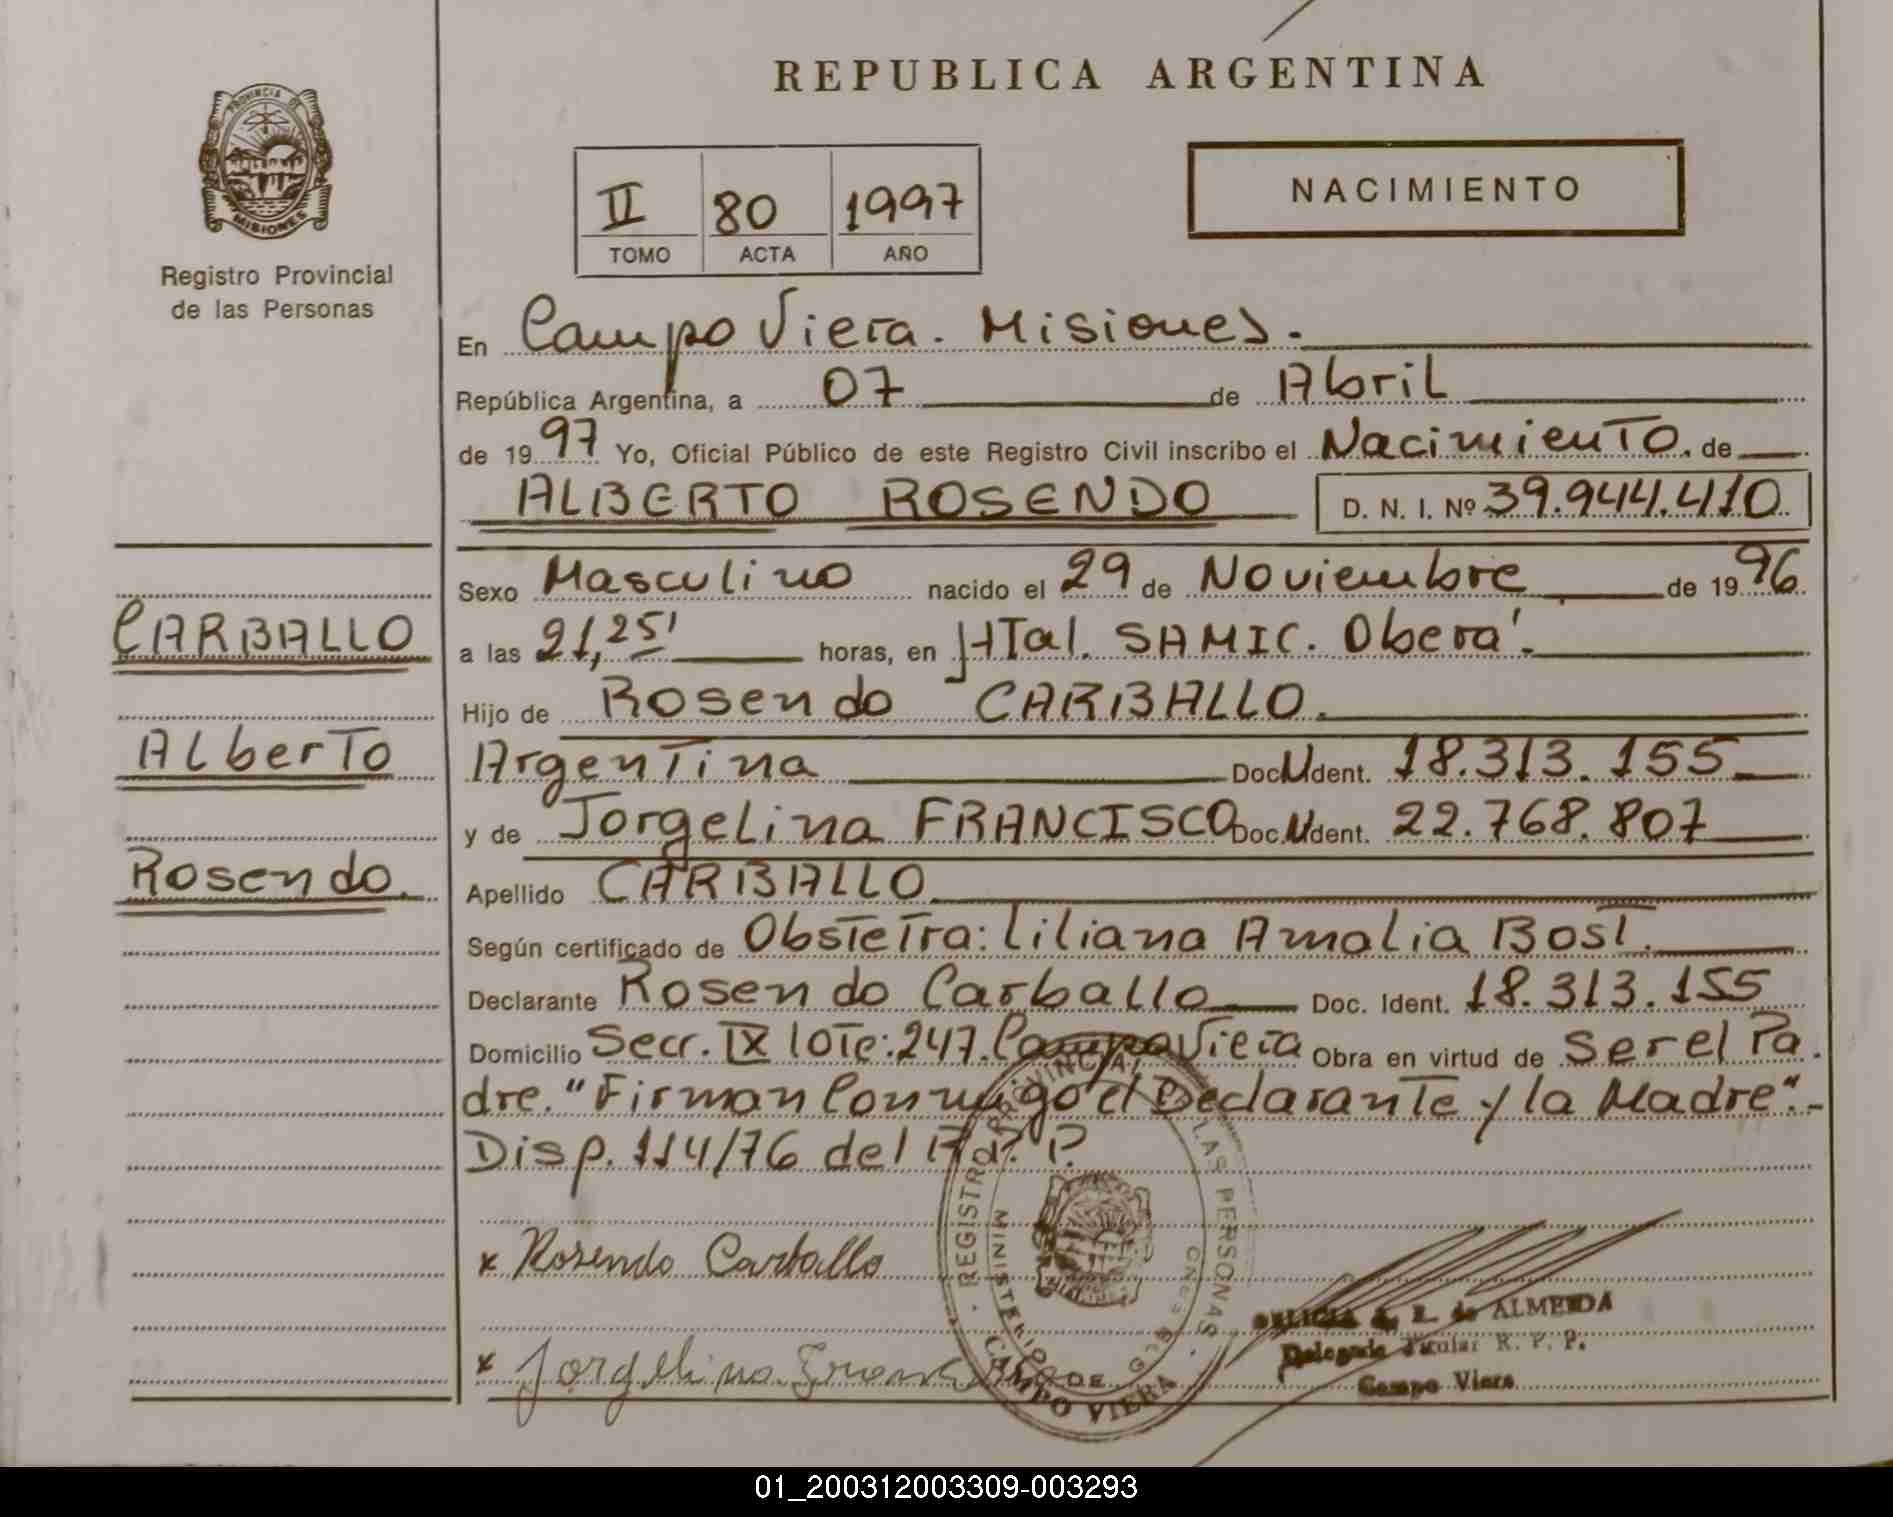 REPUBLICA ARGENTINA
PROVINCIA DE
MISIONES
Registro Provincial
de las Personas
II 80 1997
TOMO ACTA AÑO
NACIMIENTO
En Campo Viera. Misiones.
República Argentina, a 07 de Abril
de 1997 Yo, Oficial Público de este Registro Civil inscribo el Nacimiento. de
ALBERTO ROSENDO D. N. I. Nº 39.944.410
Sexo Masculino nacido el 29 de Noviembre de 1996
CARBALLO
a las 21,25' horas, en HTal. SAMIC. Oberá.
Hijo de Rosendo CARBALLO.
Alberto
Argentina Doc. Ident. 18.313.155
y de Jorgelina FRANCISCO Doc. Ident. 22.768.807
Rosendo.
Apellido CARBALLO
Según certificado de Obstetra: Liliana Amalia Bost.
Declarante Rosendo Carballo Doc. Ident. 18.313.155
Domicilio Secr. IX lote: 247. Campo Viera Obra en virtud de Ser el Pa
dre. "Firman Conmigo el Declarante y la Madre".-
Disp. 114/76 del P.
REGISTRO PROVINCIAL LAS PERSONAS
MINISTERIO DE
CAMPO VIERA
x Rosendo Carballo
x Jorgelina
de ALMEIDA
Delegada Titular R. P. P.
Campo Viera
01_200312003309-003293